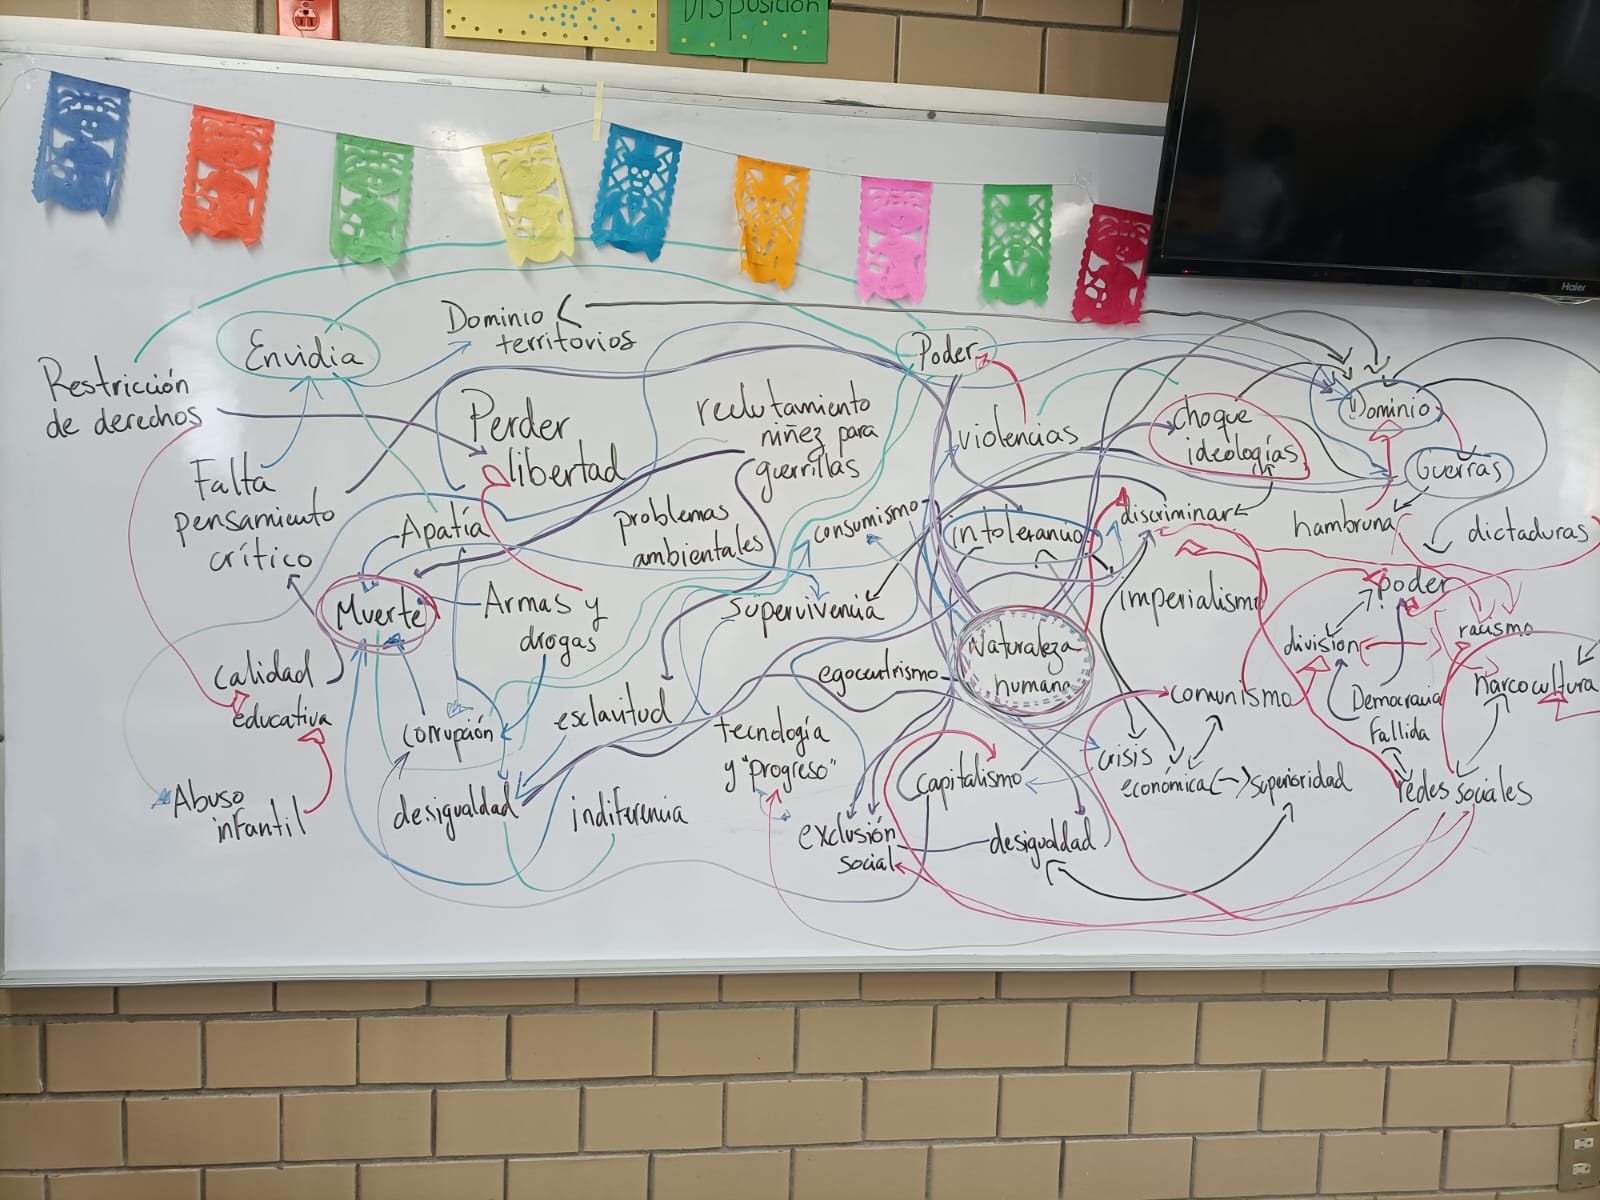 Disposición
Haier
Envidia
Dominio
territorios
Poder
Restricción
de derechos
Perder
libertad
reclutamiento
niñez para
guerrillas
violencias
choque
ideologías
Dominio
Guerras
Falta
pensamiento
crítico
Apatía
problemas
ambientales
consumismo
intolerancia
discriminar
hambruna
dictaduras
Muerte
Armas y
drogas
supervivencia
imperialismo
poder
división
racismo
Naturaleza
humana
egocentrismo
calidad
educativa
corrupción
esclavitud
tecnología
y "progreso"
comunismo
Democracia
fallida
narcocultura
crisis
económica
superioridad
redes sociales
Abuso
infantil
desigualdad
indiferencia
capitalismo
exclusión
social
desigualdad